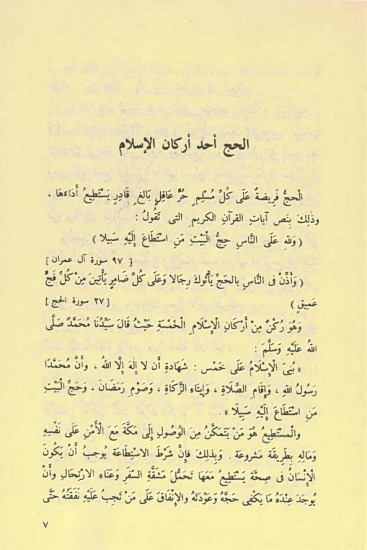 الحج أحد أركان الإسلام
الْحَجُّ فَرِيضَةٌ عَلَى كُلِّ مُسْلِمٍ حُرٍّ عَاقِلٍ بَالِغٍ قَادِرٍ يَسْتَطِيعُ أَدَاءَهَا .
وذلِكَ بِنَص آيَاتِ القُرآنِ الكَرِيمِ التى تَقُولُ :
( وَلله عَلَى النَّاسِ حِجُّ الْبَيْتِ مَنِ اسْتَطَاعَ إِلَيْهِ سَبِيلا )
[ ٩٧ سورة آل عمران ]
( وَأَذِّنْ فى النَّاسِ بِالحَجِّ يَأْتُوكَ رِجالا وَعَلَى كُلِّ ضَامِرٍ يَأْتِينَ مِنْ كُلِّ فَجٍّ
عَمِيقٍ ) [ ٢٧ سورة الحج ]
وَهُوَ رُكْنٌ مِنْ أَرْكَانِ الإِسْلَامِ الْخَمْسَةِ حَيْثُ قَالَ سَيِّدُنَا مُحَمَّدٌ صَلَّى
اللهُ عَلَيْهِ وَسَلَّمَ :
« بُنِىَ الإِسْلَامُ عَلَى خَمْسٍ : شَهَادَةِ أَن لا إِلهَ إِلَّا اللهُ ، وَأَنَّ مُحَمَّدًا
رَسُولُ اللهِ ، وَإِقَامِ الصَّلَاةِ ، وَإِيتَاءِ الزَّكَاةِ ، وَصَوْمِ رَمَضَانَ . وَحَجِّ الْبَيْتِ
مَنِ اسْتَطَاعَ إِلَيْهِ سَبِيلًا »
والْمُسْتَطِيعُ هُوَ مَنْ يَتَمَكَّنُ مِنَ الْوُصُولِ إِلَى مَكَّةَ مَعَ الْأَمْنِ عَلَى نَفْسِهِ
وَمَالِهِ بِطَرِيقَةٍ مَشْرُوعَة . وَبِذلِكَ فَإِنَّ شَرْطَ الاسْتِطَاعَةِ يُوجبُ أَنْ يَكُونَ
الْإِنْسَانُ فى صِحَّةٍ يَسْتَطِيعُ مَعَهَا تَحَمُّلَ مَشَقَّةِ السَّفَرِ وَعَنَاءِ الارْتِحَالِ وَأَنْ
يُوجَدَ عِنْدَهُ مَا يَكْفِى حَجَّهُ وَعَوْدَتَهُ وَالإِنْفَاقَ عَلَى مَنْ تَجِبُ عَلَيْهِ نَفَقَتُهُ حَتَّى
٧